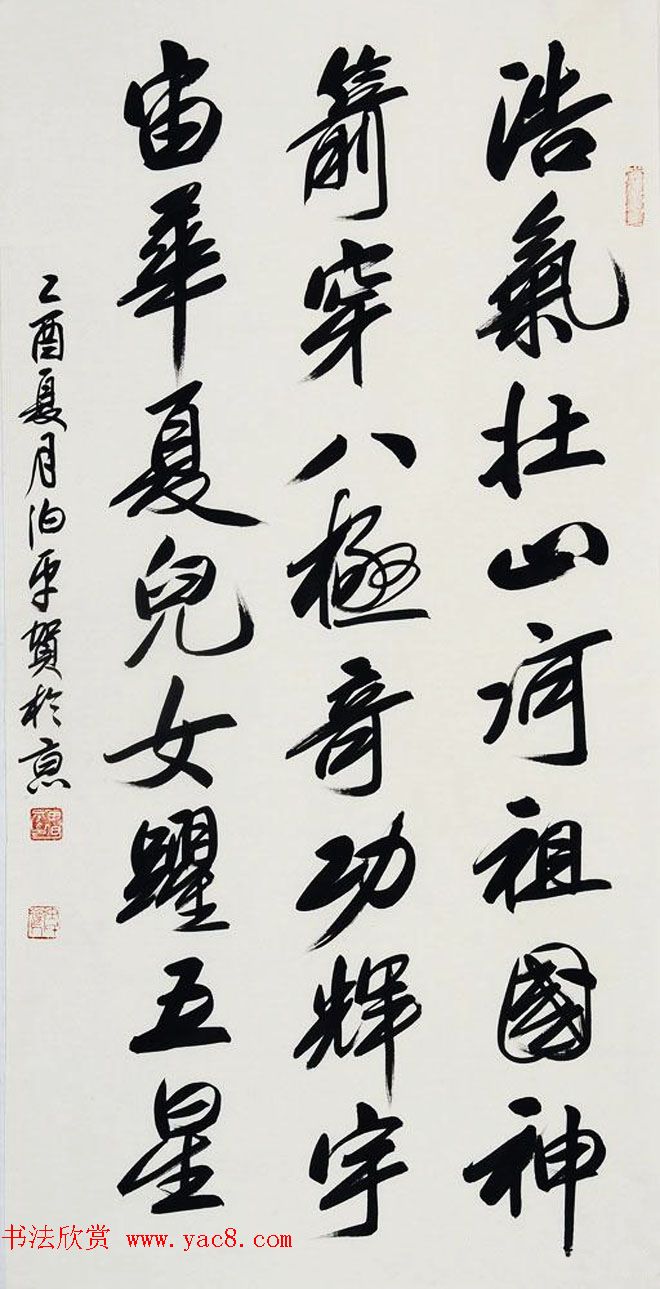 浩氣壯山河祖國神
箭穿八極奇功輝宇
宙華夏兒女躍五星
乙酉夏月伯平賀於京
书法欣赏 www.yac8.com